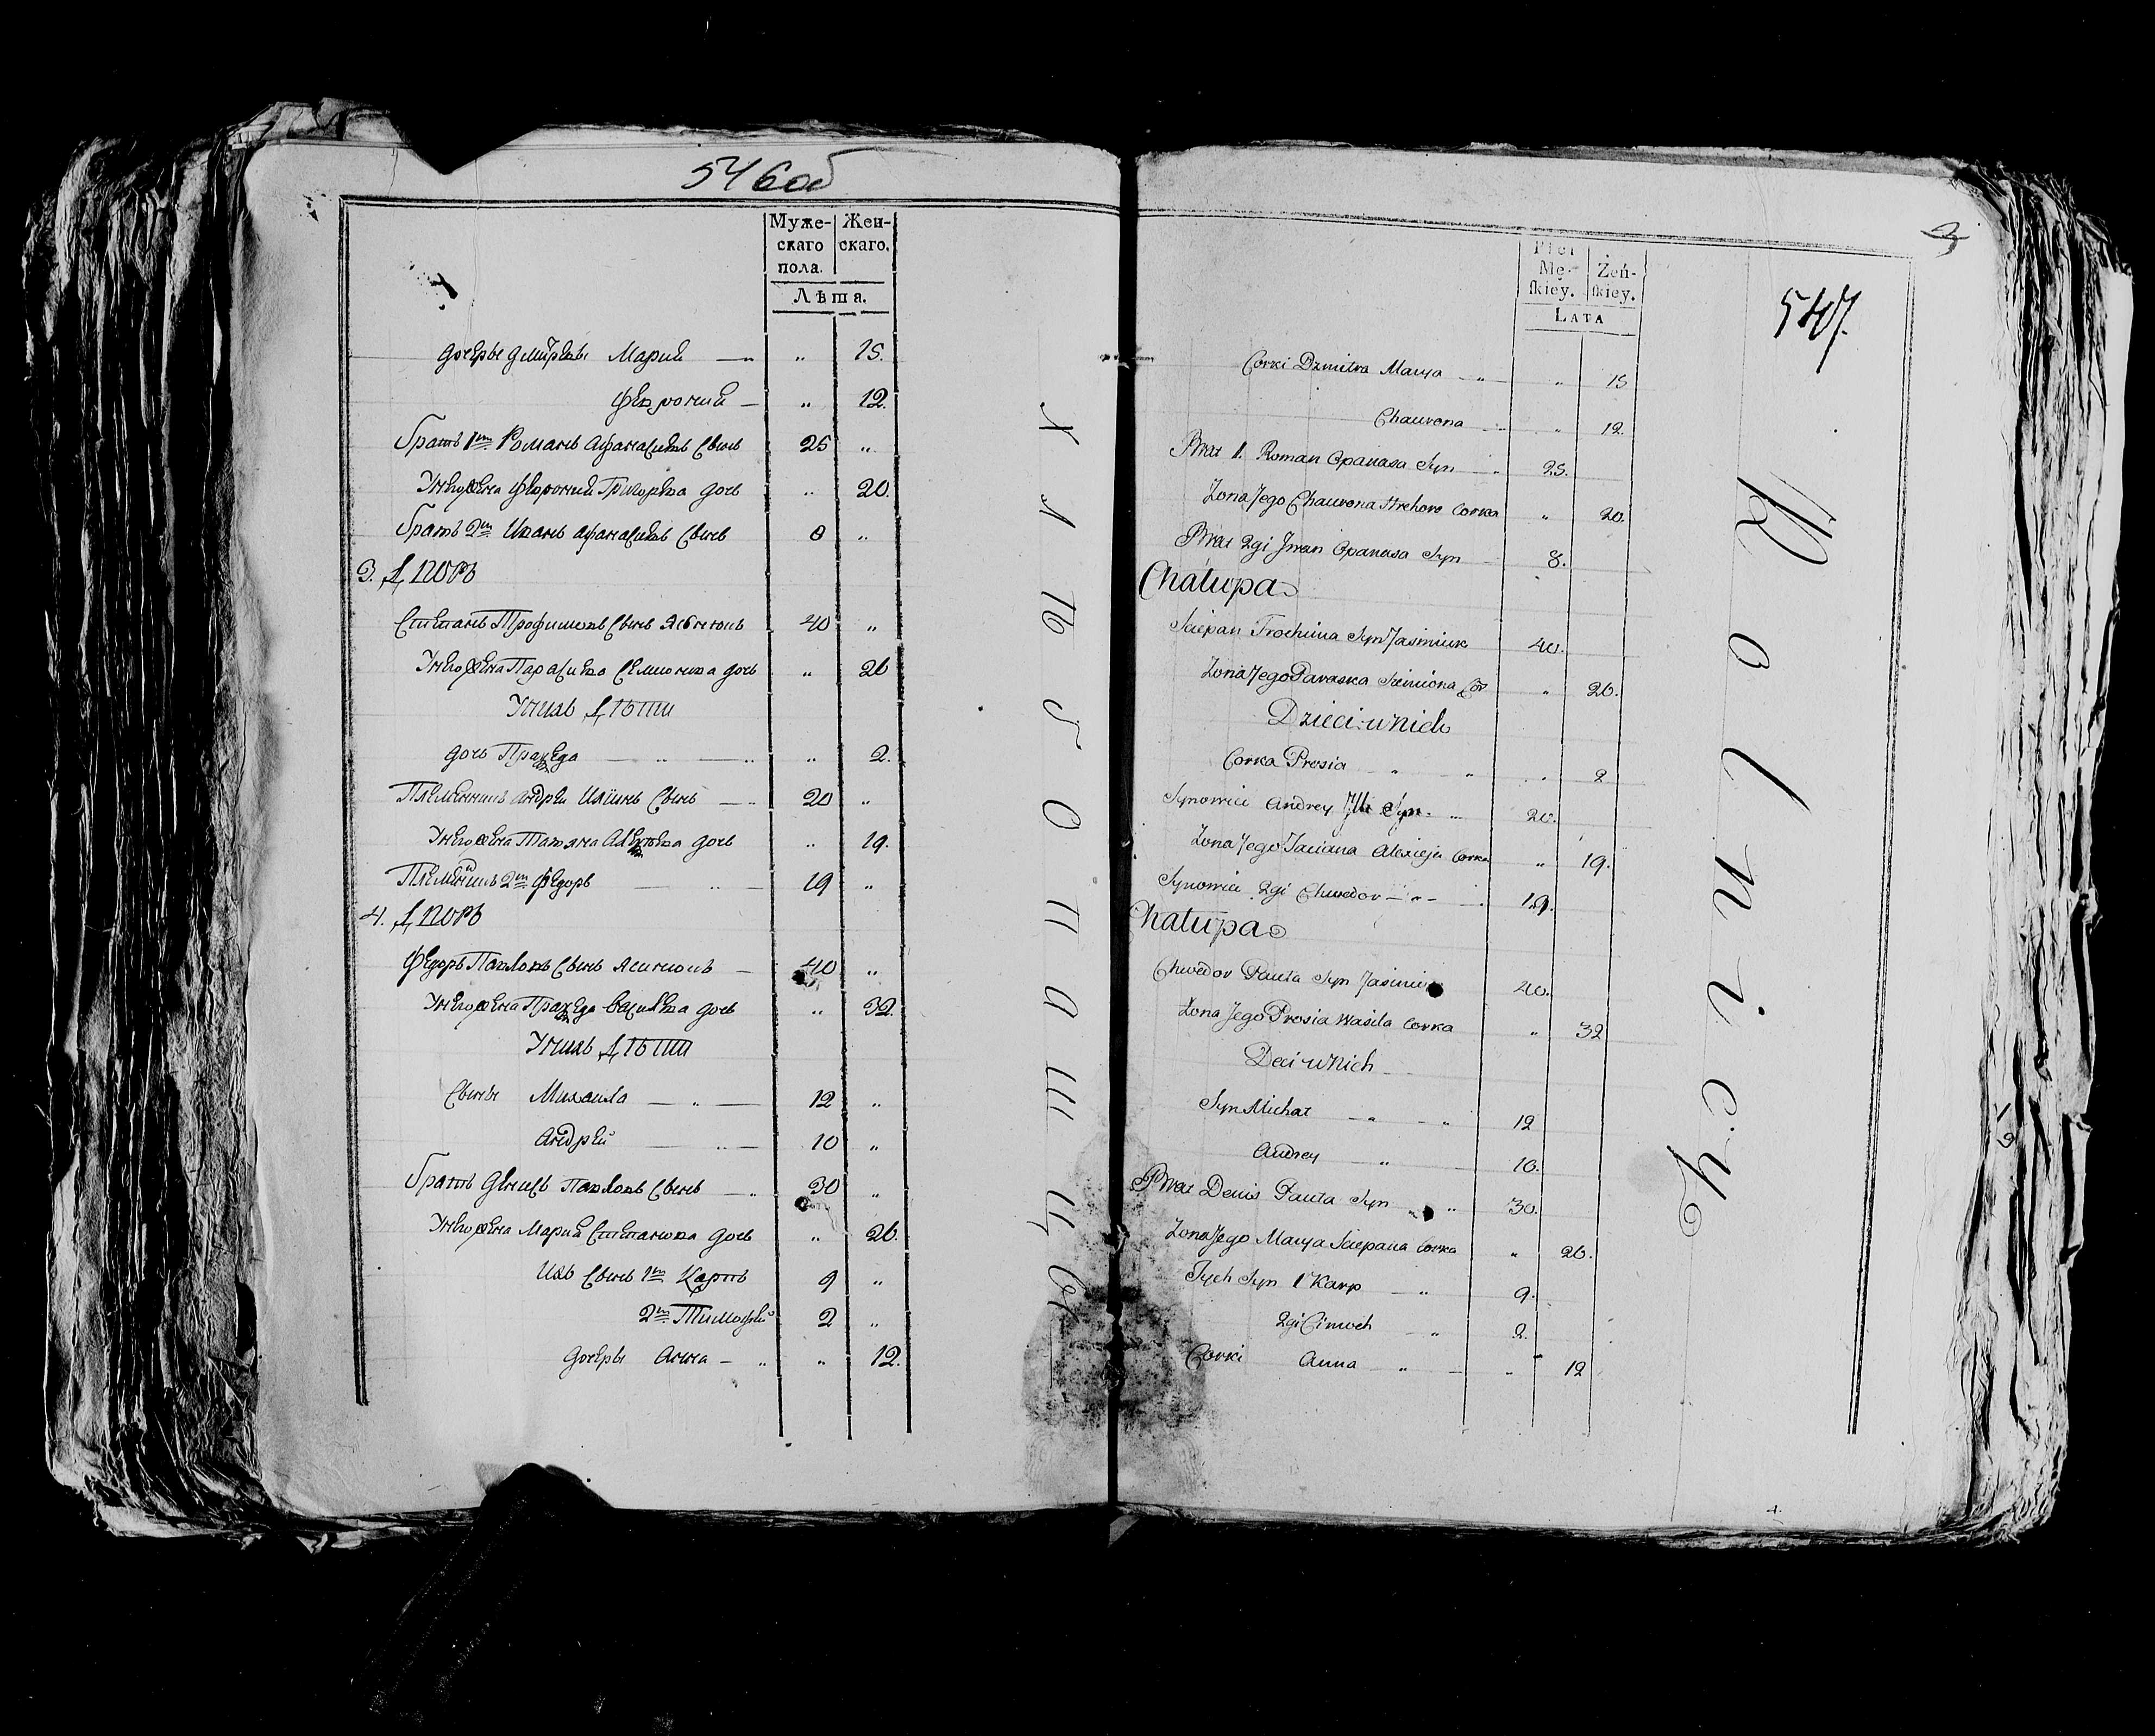 546об
Муже-
скаго
пола.
Жен-
скаго.
Лѣта.
дочеры дмитровы Марий — " 15.
февроний — " 12.
братъ 1й Романъ афанасиевъ Сынъ 25 "
Унегожена февроний Григорьева дочь " 20.
братъ 2й Иванъ афанасиевъ Сынъ 8 "
3. дворъ
Степанъ Трофимовъ Сынъ Ясинюкъ 40 "
Унегожена Парасцева Семионова дочь " 26
Унихъ дѣти
дочь Пракседа " 2.
Племенникъ андрей Илiинъ Сынъ 20 "
Унегожена Татяна Алексѣева дочь " 19.
Племеникъ 2й федоръ 19 "
4. дворъ
федоръ Павловъ Сынъ Ясинюкъ — 40 "
Унегожена Пракседа василева дочь " 32.
Унихъ дѣти
Сыны Михаила 12 "
андрей 10 "
братъ денисъ павловъ Сынъ 30 "
Унегожена Марий Степанова дочь " 26.
ихъ Сынъ 1й Карпъ 9 "
2й Тимофей 2 "
дочеры Анна — " 12.
хлѣбопашцы
3
547.
Płci
Mę-
skiey.
Żeń-
skiey.
LATA
Corki Dzmitra Marya " 15
Chaurona " 12.
Brat 1. Roman Opanasa Syn 25.
Zona Jego Chaurona Hrehora Corka " 20.
Brat 2gi Jwan Opanasa Syn 8.
Chałupa
Sciepan Trochima Syn Jasiniuk 40.
Zona Jego Paraska Siemiona Cor " 26.
Dzieci u Nich
Corka Prosia " 2
Synowiec Andrey Jlli Syn. 20.
Zona Jego Taciana Alexieja Corka " 19.
Synowiec 2gi Chwedor 19.
Chałupa
Chwedor Pauła Syn Jasiniuk 40.
Zona Jego Prosia Wasila Corka " 32
Deci u Nich
Syn Michał 12
Andrey 10.
Brat Denis Pauła Syn 30.
Zona Jego Marya Sciepana Corka " 26.
Tych Syn 1 Karp 9.
2gi Cimoch 2.
Corki Anna " 12
Rolnicy